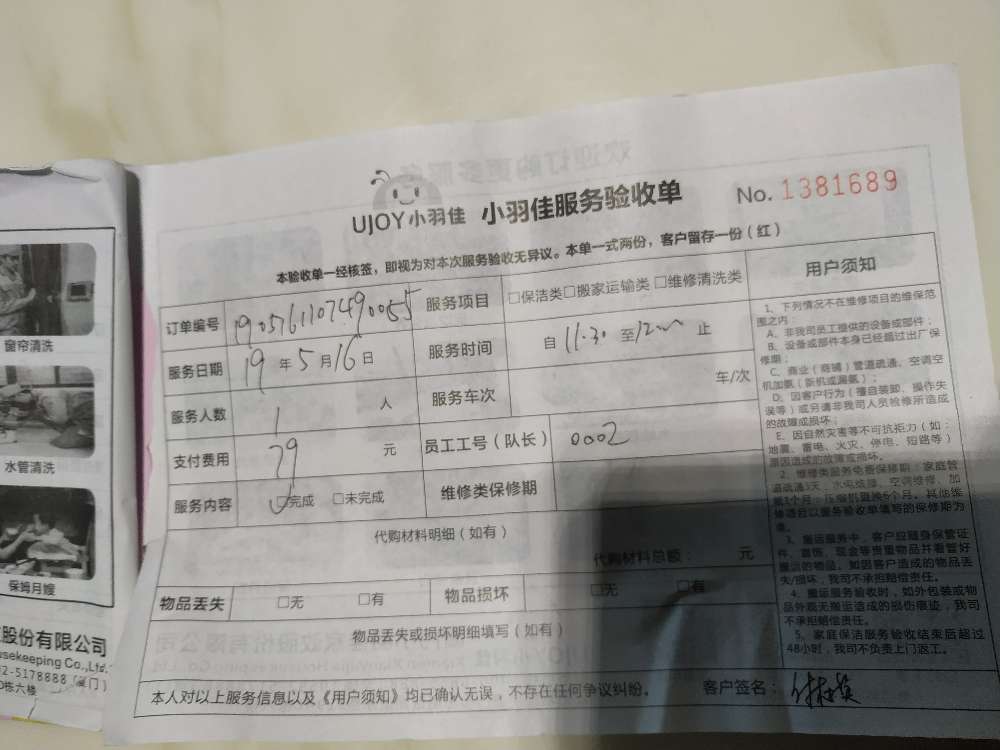 UJOY小羽佳 小羽佳服务验收单 No. 1381689
本验收单一经核签，即视为对本次服务验收无异议。本单一式两份，客户留存一份（红）
订单编号 服务项目 □保洁类□搬家运输类□维修清洗类
服务日期 19年5月16日 服务时间 自11:30至 止
服务人数 1 人 服务车次 车/次
支付费用 元 员工工号（队长） 0002
服务内容 □完成 □未完成 维修类保修期
代购材料明细（如有）
代购材料总额： 元
物品丢失 □无 □有 物品损坏 □无 □有
物品丢失或损坏明细填写（如有）
本人对以上服务信息以及《用户须知》均已确认无误，不存在任何争议纠纷。 客户签名：
用户须知
1、下列情况不在维修项目的维保范
围之内：
A、非我司员工提供的设备或部件；
B、设备或部件本身已经超过出厂保
修期；
C、商业（商铺）管道疏通、空调空
机加氟（新机或漏氟）；
D、因客户行为（擅自装卸、操作失
误等）或另请非我司人员检修所造成
的故障或损坏；
E、因自然灾害等不可抗拒力（如：
地震、雷电、火灾、停电、短路等）
原因造成的故障或损坏。
2、维修类服务免费保修期：家庭管
道疏通3天，水电维修、空调维修、加
氟1个月，压缩机更换6个月。其他维
修项目以服务验收单填写的保修期为
准。
3、搬运服务中，客户应随身保管证
件、首饰、现金等贵重物品并看管好
搬运的物品。如因客户造成的物品丢
失/损坏，我司不承担赔偿责任。
4、搬运服务验收时，如外包装或物
品外观无搬运造成的损伤痕迹，我司
不承担赔偿责任。
5、家庭保洁服务验收结束后超过
48小时，我司不负责上门返工。
窗帘清洗
水管清洗
保姆月嫂
股份有限公司
usekeeping Co.,Ltd.
2-5178888（厦门）
D栋六楼